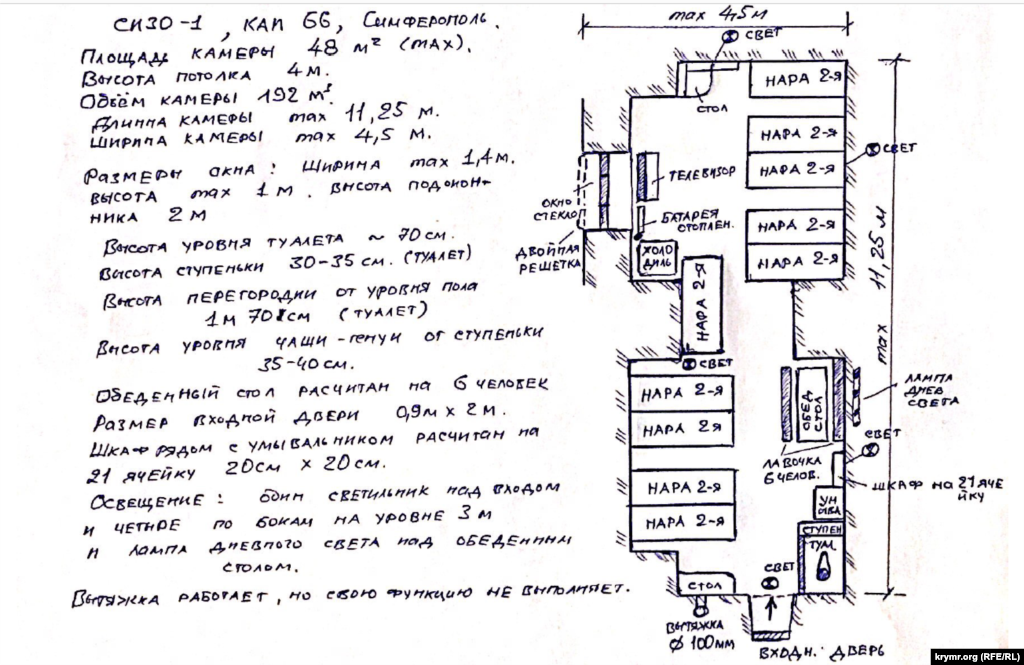 СИЗО-1, КАП 66, Симферополь.
Площадь камеры 48 м² (max).
Высота потолка 4 м.
Объём камеры 192 м³.
Длинна камеры max 11,25 м.
Ширина камеры max 4,5 м.
Размеры окна: ширина max 1,4 м.
высота max 1 м. высота подокон-
ника 2 м
Высота уровня туалета ~ 70 см.
Высота ступеньки 30-35 см. (туалет)
Высота перегородки от уровня пола
1 м 70 см (туалет)
Высота уровня чаши-генуи от ступеньки
35-40 см.
Обеденный стол расчитан на 6 человек
Размер входной двери 0,9 м х 2 м.
Шкаф рядом с умывальником расчитан на
21 ячейку 20см х 20см.
Освещение: один светильник над входом
и четыре по бокам на уровне 3 м
и лампа дневного света над обеденным
столом.
Вытяжка работает, но свою функцию не выполняет.
max 4,5 м
СВЕТ
СТОЛ
НАРА 2-я
НАРА 2-я
СВЕТ
НАРА 2-я
ТЕЛЕВИЗОР
ОКНО
СТЕКЛО
БАТАРЕЯ
ОТОПЛЕН.
НАРА 2-я
ДВОЙНАЯ
РЕШЕТКА
ХОЛО
ДИЛЬ
НАРА 2-я
НАРА 2-я
max 11,25 м
СВЕТ
НАРА 2-я
НАРА 2-я
ОБЕД
СТОЛ
ЛАМПА
ДНЕВ
СВЕТА
СВЕТ
ЛАВОЧКА
6 ЧЕЛОВ.
НАРА 2-я
НАРА 2-я
ШКАФ НА 21 ЯЧЕ
ЙКУ
УМ
ЫВА
СТУПЕН
ТУАЛ
СВЕТ
СТОЛ
ВЫТЯЖКА
Ø 100 мм
ВХОДН. ДВЕРЬ
krymr.org (RFE/RL)